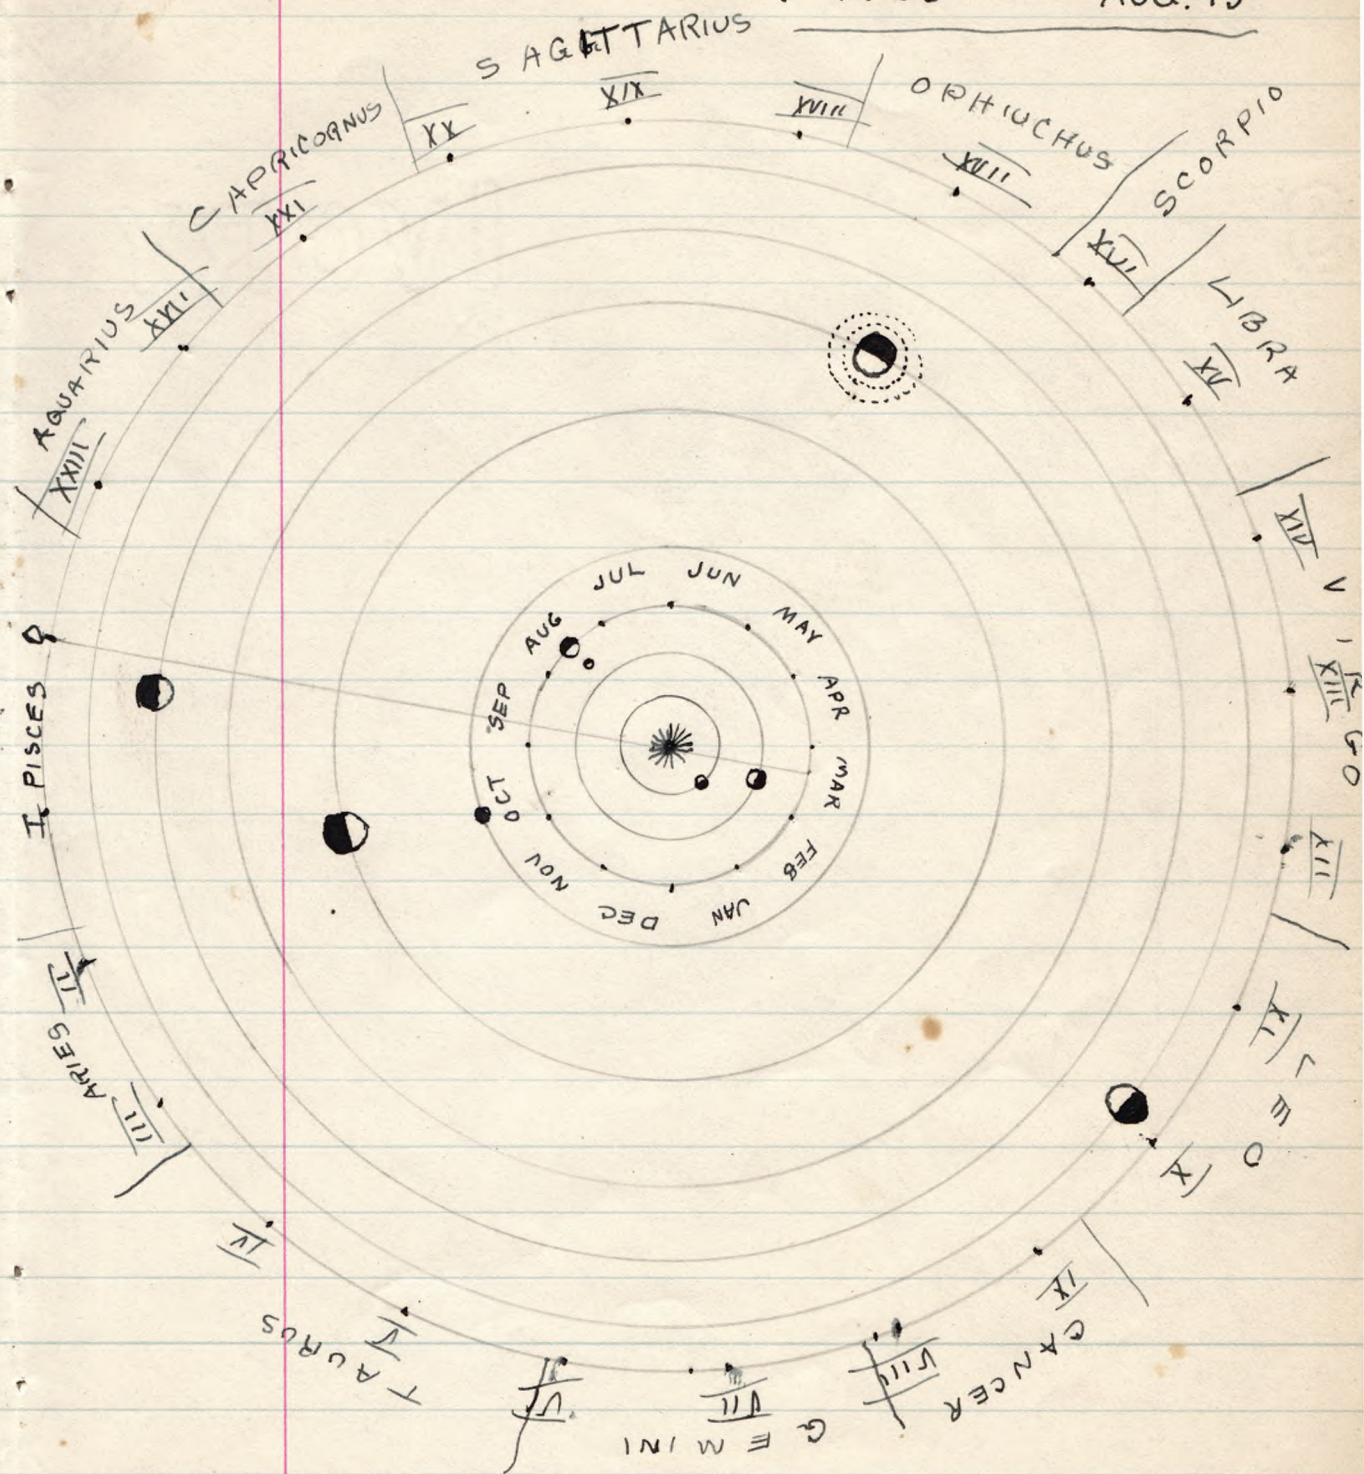 AUG. 15
SAGITTARIUS
XIX
XVIII
OPHIUCHUS
XVII
SCORPIO
XVI
LIBRA
XV
XIV
VIRGO
XIII
XII
XI
LEO
X
IX
CANCER
VIII
GEMINI
VII
VI
TAURUS
V
IV
III
ARIES
II
I
PISCES
O
XXIII
AQUARIUS
XXII
CAPRICORNUS
XXI
XX
JUN
MAY
APR
MAR
FEB
JAN
DEC
NOV
OCT
SEP
AUG
JUL